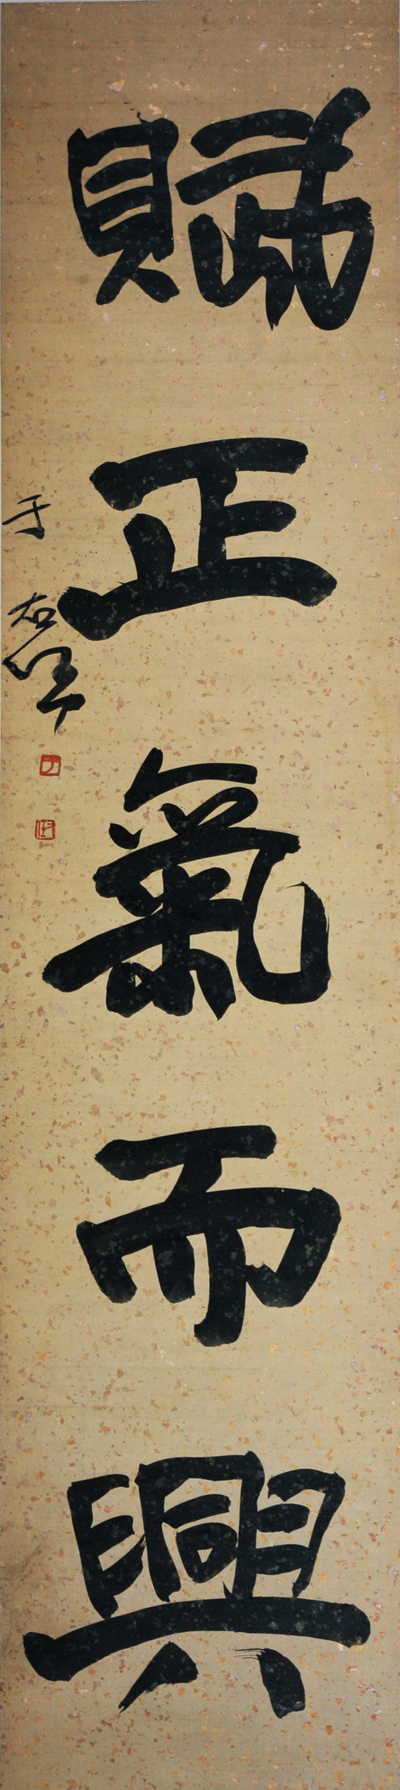 賦正氣而興
于右任